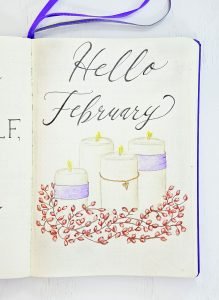 Hello
February
LF,